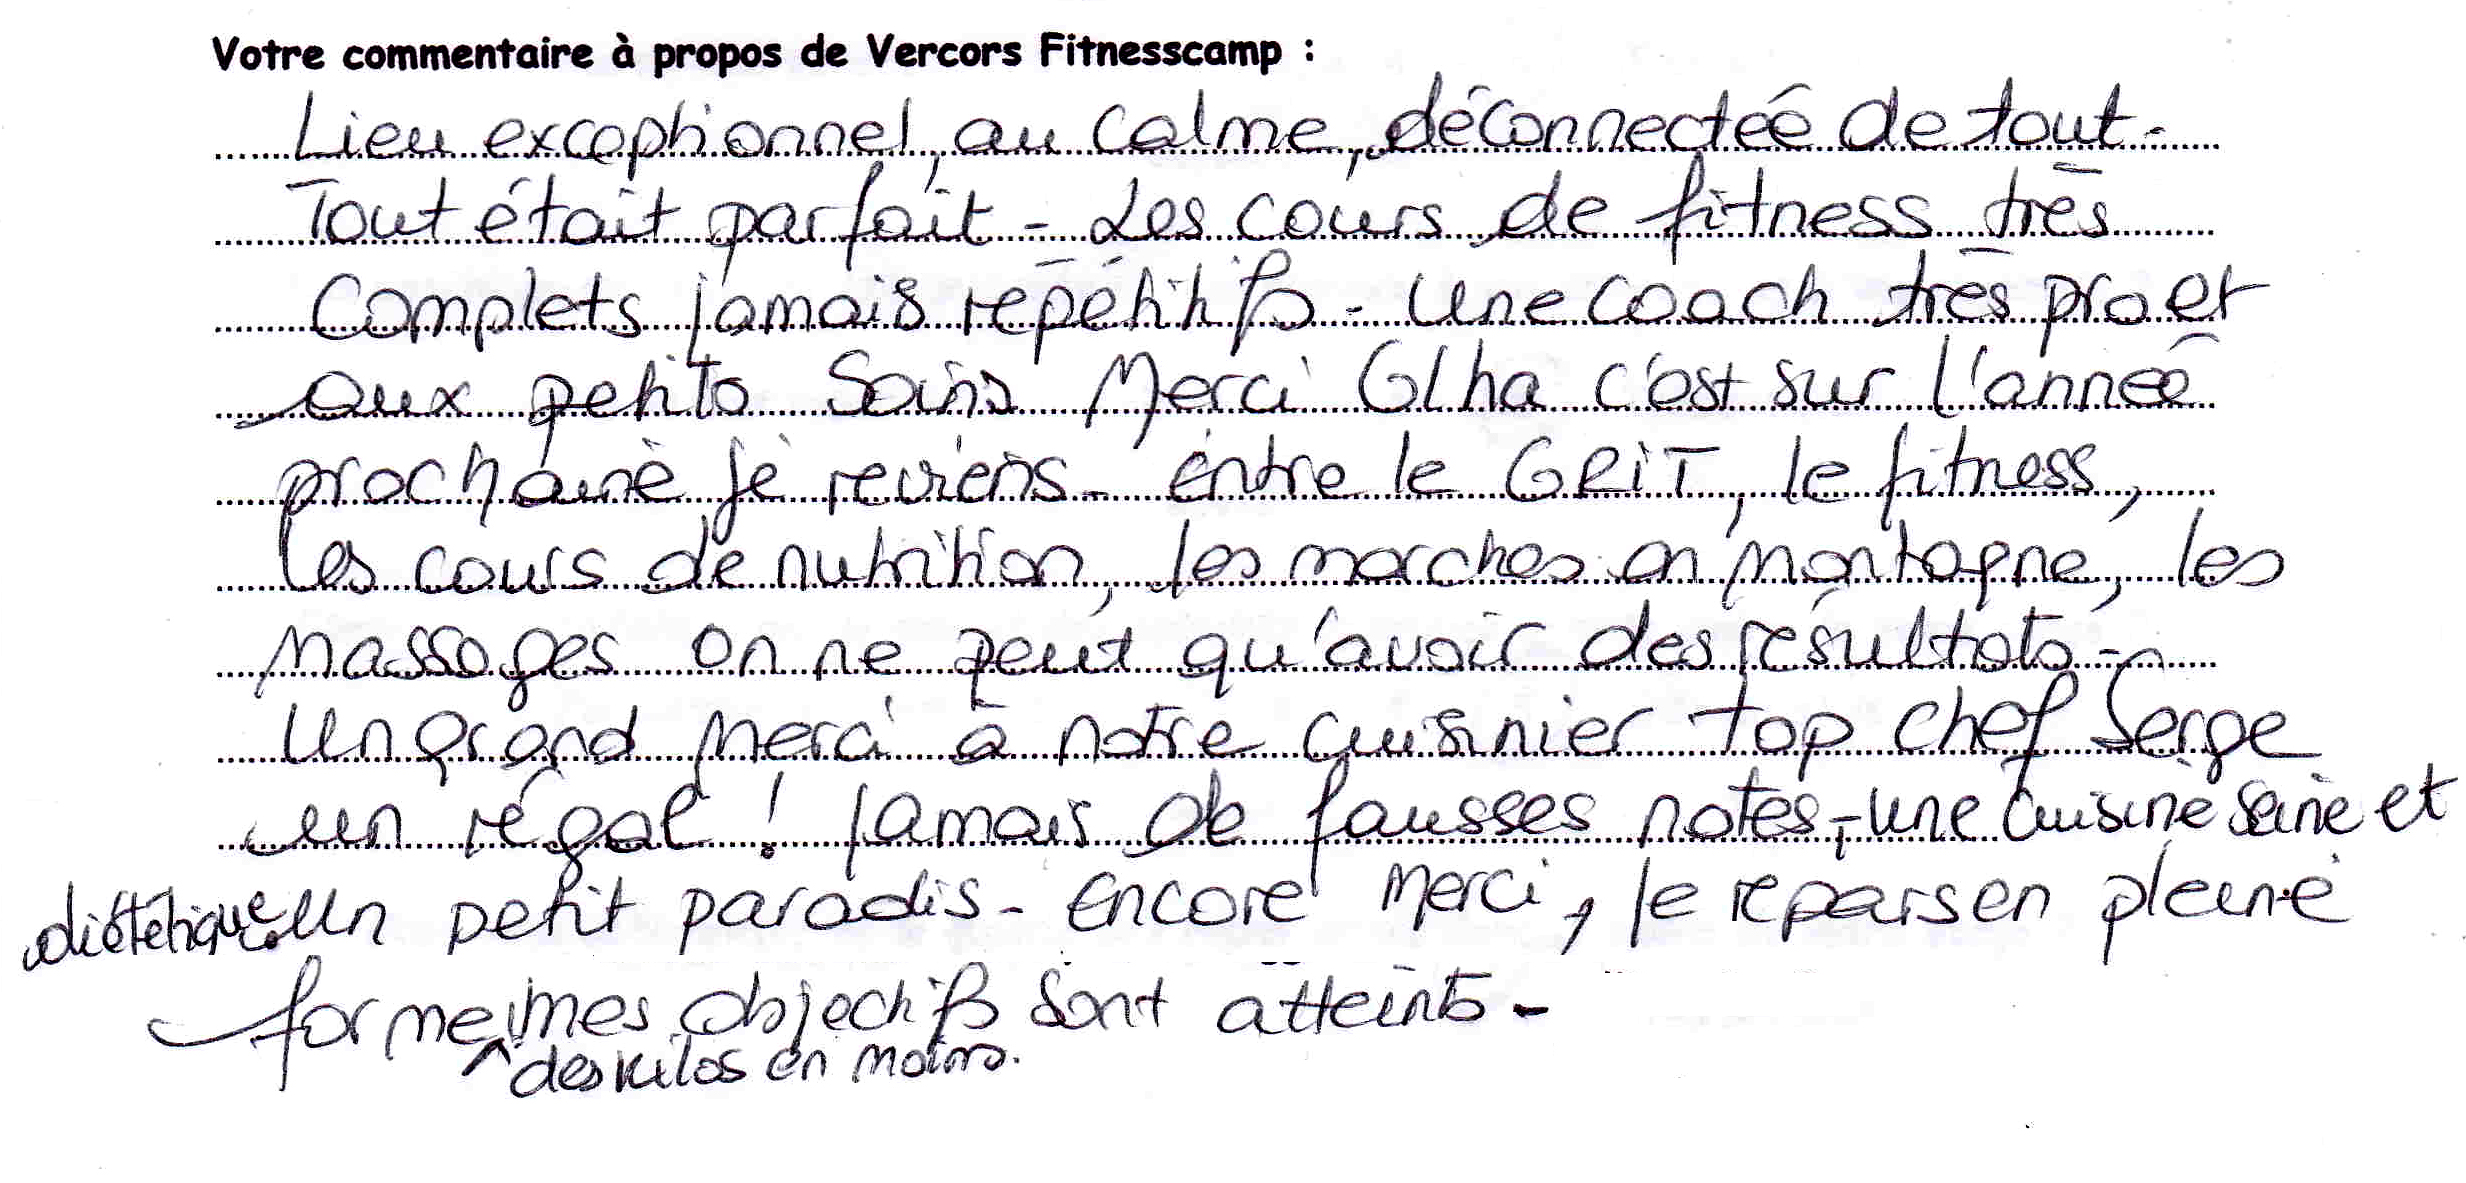 Votre commentaire à propos de Vercors Fitnesscamp :
Lieu exceptionnel, au calme, déconnectée de tout -
Tout était parfait - Les cours de fitness très
complets jamais répétitifs - Une coach très pro et
aux petits soins Merci Olha c'est sur l'année
prochaine je reviens - entre le GRIT, le fitness,
les cours de nutrition, les marches en montagne, les
massages on ne peut qu'avoir des résultats -
Un grand merci à notre cuisinier top chef Serge
un régal ! Jamais de fausses notes, - une cuisine saine et
diététique. Un petit paradis - Encore merci, je repars en pleine
forme, mes objectifs sont atteints -
^ des kilos en moins.